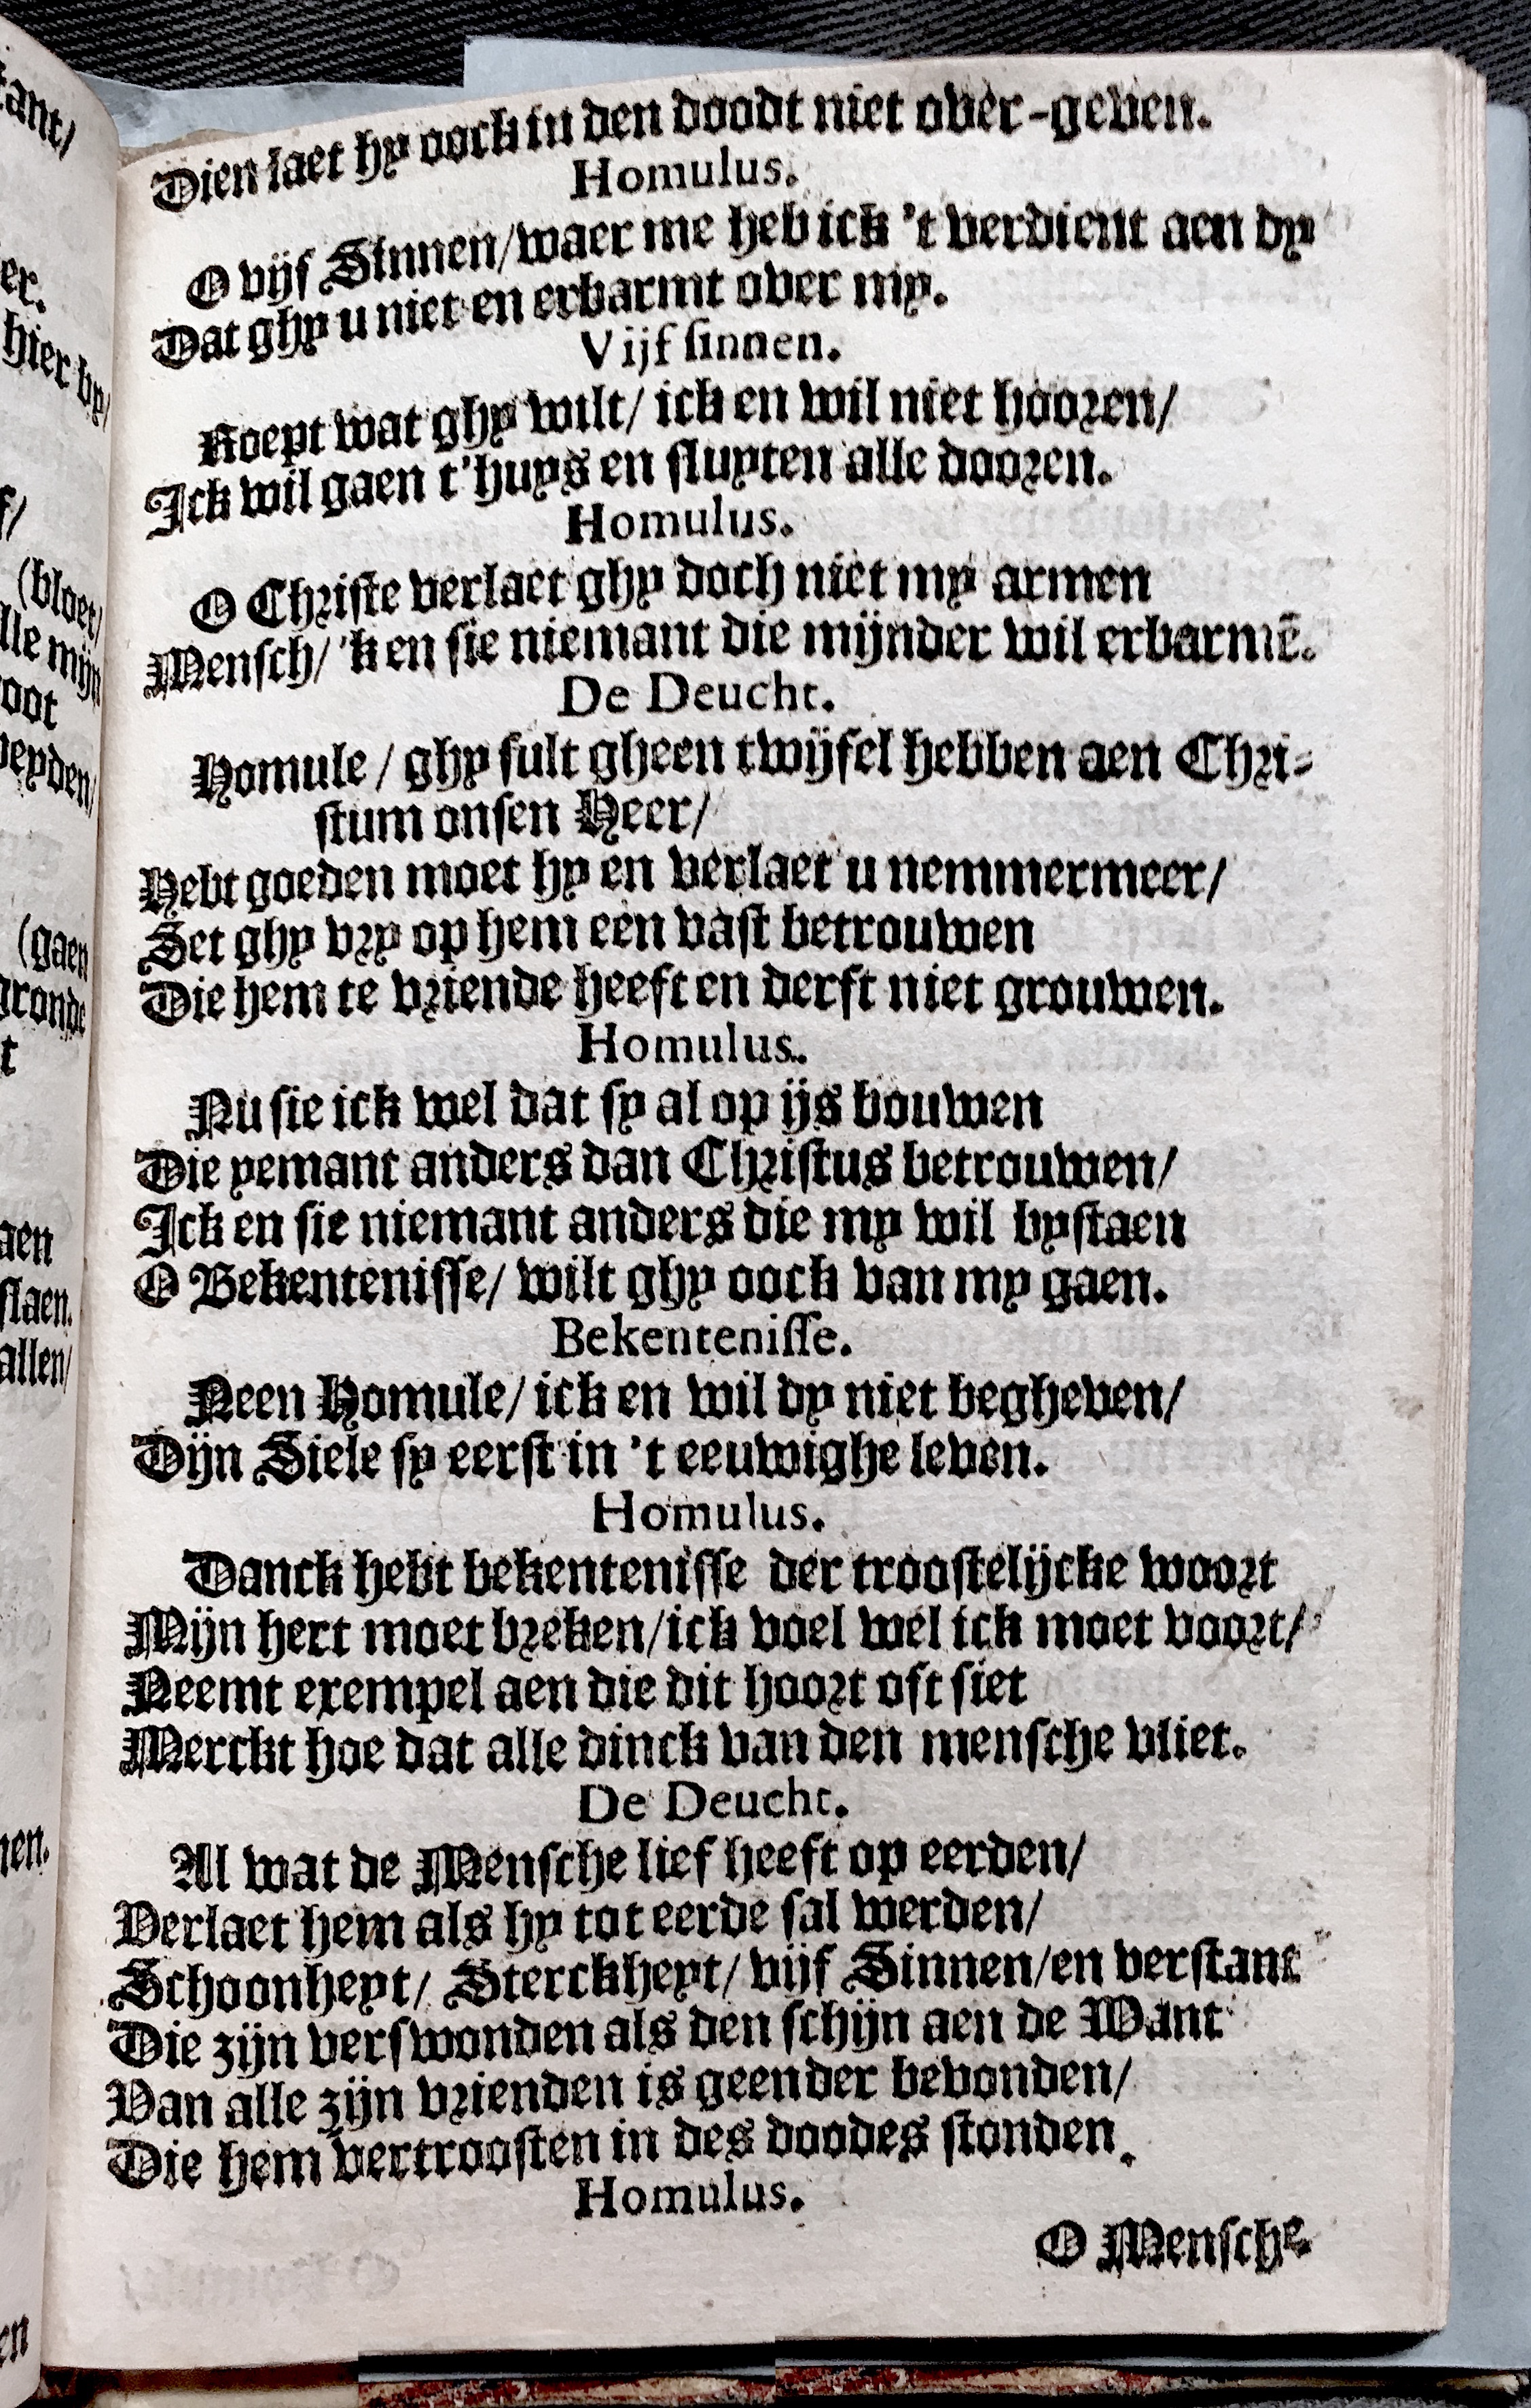 Dien laet hy oock in den doodt niet over-geven.
Homulus.
O vijf Sinnen/ waer me heb ick 't verdient aen dy
Dat ghy u niet en erbarmt over my.
Vijf sinnen.
Roept wat ghy wilt/ ick en wil niet hooren/
Ick wil gaen t'huys en sluyten alle dooren.
Homulus.
O Christe verlaet ghy doch niet my armen
Mensch/ 'k en sie niemant die mijnder wil erbarmē.
De Deucht.
Homule / ghy sult gheen twijfel hebben aen Chri-
stum onsen Heer/
Hebt goeden moet hy en verlaet u nemmermeer/
Set ghy vry op hem een vast betrouwen
Die hem te vriende heeft en derft niet grouwen.
Homulus.
Nu sie ick wel dat sy al op ijs bouwen
Die yemant anders dan Christus betrouwen/
Ick en sie niemant anders die my wil bystaen
O Bekentenisse/ wilt ghy oock van my gaen.
Bekentenisse.
Neen Homule/ ick en wil dy niet begheven/
Dijn Siele sy eerst in 't eeuwighe leven.
Homulus.
Danck hebt bekentenisse der troostelijcke woort
Mijn hert moet breken/ ick voel wel ick moet voort/
Neemt exempel aen die dit hoort oft siet
Merckt hoe dat alle dinck van den mensche vliet.
De Deucht.
Al wat de Mensche lief heeft op eerden/
Verlaet hem als hy tot eerde sal werden/
Schoonheyt/ Sterckheyt/ vijf Sinnen/ en verstant
Die zijn verswonden als den schijn aen de Want
Van alle zijn vrienden is geender bevonden/
Die hem vertroosten in des doodes stonden.
Homulus.
O Mensche